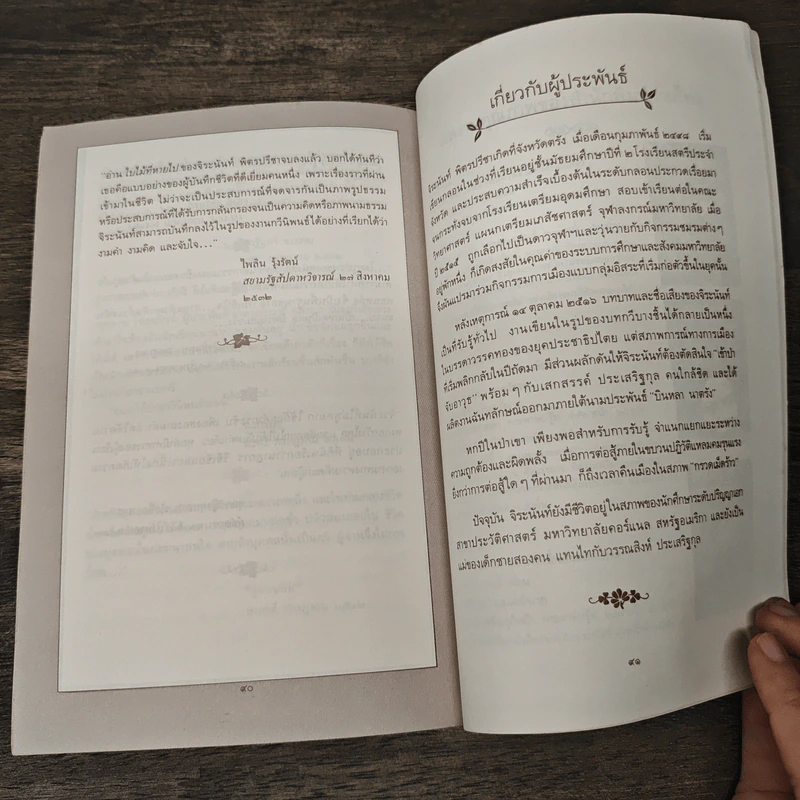 "อ่าน ใบไม้ที่หายไป ของจิระนันท์ พิตรปรีชาจบลงแล้ว บอกได้ทันทีว่า
เธอคือแบบอย่างของผู้บันทึกชีวิตที่ดีเยี่ยมคนหนึ่ง เพราะเรื่องราวที่ผ่าน
เข้ามาในชีวิต ไม่ว่าจะเป็นประสบการณ์ที่จดจารกันเป็นภาพรูปธรรม
หรือประสบการณ์ที่ได้รับการกลั่นกรองจนเป็นความคิดหรือภาพนามธรรม
จิระนันท์สามารถบันทึกลงไว้ในรูปของงานกวีนิพนธ์ได้อย่างที่เรียกได้ว่า
งามคำ งามคิด และจับใจ..."
ไพลิน รุ้งรัตน์
สยามรัฐสัปดาหวิจารณ์ ๒๗ สิงหาคม
๒๕๓๒
๙๐
เกี่ยวกับผู้ประพันธ์
จิระนันท์ พิตรปรีชาเกิดที่จังหวัดตรัง เมื่อเดือนกุมภาพันธ์ ๒๔๙๘ เริ่ม
เขียนกลอนในช่วงที่เรียนอยู่ชั้นมัธยมศึกษาปีที่ ๒ โรงเรียนสตรีประจำ
จังหวัด และประสบความสำเร็จเบื้องต้นในระดับกลอนประกวดเรื่อยมา
จนกระทั่งจบจากโรงเรียนเตรียมอุดมศึกษา สอบเข้าเรียนต่อในคณะ
วิทยาศาสตร์ แผนกเตรียมเภสัชศาสตร์ จุฬาลงกรณ์มหาวิทยาลัย เมื่อ
ปี ๒๕๑๕ ถูกเลือกไปเป็นดาวจุฬาฯและวุ่นวายกับกิจกรรมชมรมต่างๆ
อยู่พักหนึ่ง ก็เกิดสงสัยในคุณค่าของระบบการศึกษาและสังคมมหาวิทยาลัย
จึงผันแปรมาร่วมกิจกรรมการเมืองแบบกลุ่มอิสระที่เริ่มก่อตัวขึ้นในยุคนั้น
หลังเหตุการณ์ ๑๔ ตุลาคม ๒๕๑๖ บทบาทและชื่อเสียงของจิระนันท์
เป็นที่รับรู้ทั่วไป งานเขียนในรูปของบทกวีบางชิ้นได้กลายเป็นหนึ่ง
ในบรรดาวรรคทองของยุคประชาธิปไตย แต่สภาพการณ์ทางการเมือง
ที่เริ่มพลิกกลับในปีถัดมา มีส่วนผลักดันให้จิระนันท์ต้องตัดสินใจ "เข้าป่า
จับอาวุธ" พร้อมๆ กับเสกสรรค์ ประเสริฐกุล คนใกล้ชิด และได้
ผลิตงานฉันทลักษณ์ออกมาภายใต้นามประพันธ์ "บินหลา นาตรัง"
หกปีในป่าเขา เพียงพอสำหรับการรับรู้ จำแนกแยกแยะระหว่าง
ความถูกต้องและผิดพลั้ง เมื่อการต่อสู้ภายในขบวนปฏิวัติแหลมคมรุนแรง
ยิ่งกว่าการต่อสู้ใดๆ ที่ผ่านมา ก็ถึงเวลาคืนเมืองในสภาพ "กรวดเม็ดร้าว"
ปัจจุบัน จิระนันท์ยังมีชีวิตอยู่ในสภาพของนักศึกษาระดับปริญญาเอก
สาขาประวัติศาสตร์ มหาวิทยาลัยคอร์แนล สหรัฐอเมริกา และยังเป็น
แม่ของเด็กชายสองคน แทนไทกับวรรณสิงห์ ประเสริฐกุล
๙๑